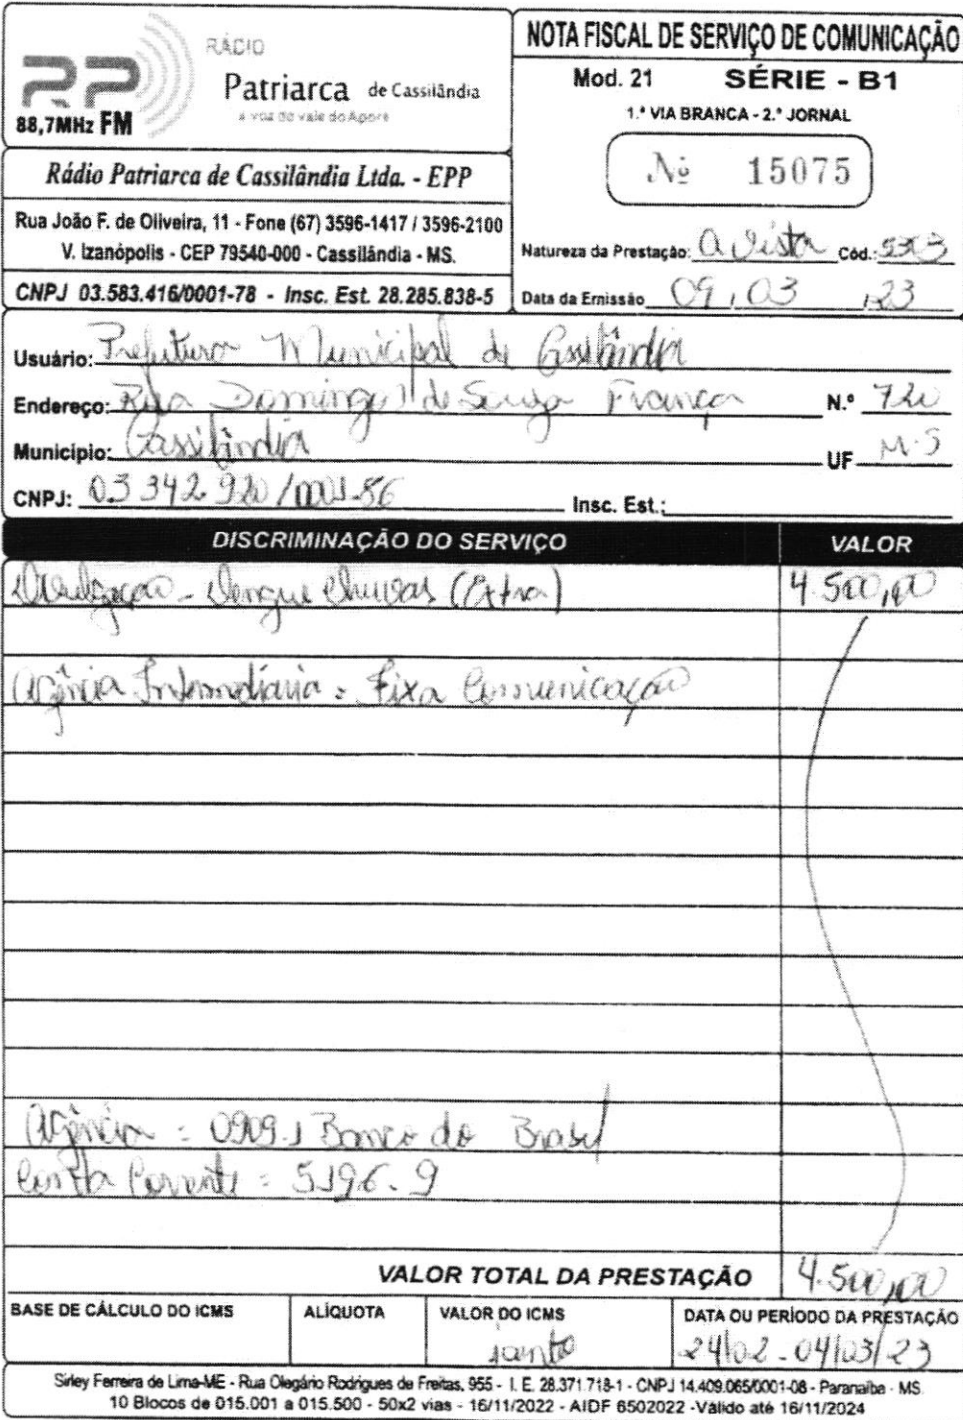 RÁDIO
Patriarca de Cassilândia
a voz do vale do Aporé
RP
88,7MHz FM
Rádio Patriarca de Cassilândia Ltda. - EPP
Rua João F. de Oliveira, 11 - Fone (67) 3596-1417 / 3596-2100
V. Izanópolis - CEP 79540-000 - Cassilândia - MS.
CNPJ 03.583.416/0001-78 - Insc. Est. 28.285.838-5
NOTA FISCAL DE SERVIÇO DE COMUNICAÇÃO
Mod. 21 SÉRIE - B1
1.ª VIA BRANCA - 2.ª JORNAL
Nº 15075
Natureza da Prestação: a vista Cód.: 5303
Data da Emissão 09 / 03 / 23
Usuário: Prefeitura Municipal de Cassilândia
Endereço: Rua Domingos de Souza França N.º 720
Município: Cassilândia UF M.S
CNPJ: 03 342 920/0001-86 Insc. Est.:
DISCRIMINAÇÃO DO SERVIÇO VALOR
Divulgação - Dengue Chuvas (Extra) 4.500,00
Agência Intermediária = Fixa Comunicação
Agência = 0909-1 Banco do Brasil
Conta Corrente = 5196-9
VALOR TOTAL DA PRESTAÇÃO 4.500,00
BASE DE CÁLCULO DO ICMS ALÍQUOTA VALOR DO ICMS DATA OU PERÍODO DA PRESTAÇÃO
isento 24/02 - 04/03/23
Sirley Ferreira de Lima-ME - Rua Olegário Rodrigues de Freitas, 955 - I. E. 28.371.718-1 - CNPJ 14.409.065/0001-08 - Paranaíba - MS
10 Blocos de 015.001 a 015.500 - 50x2 vias - 16/11/2022 - AIDF 6502022 - Válido até 16/11/2024